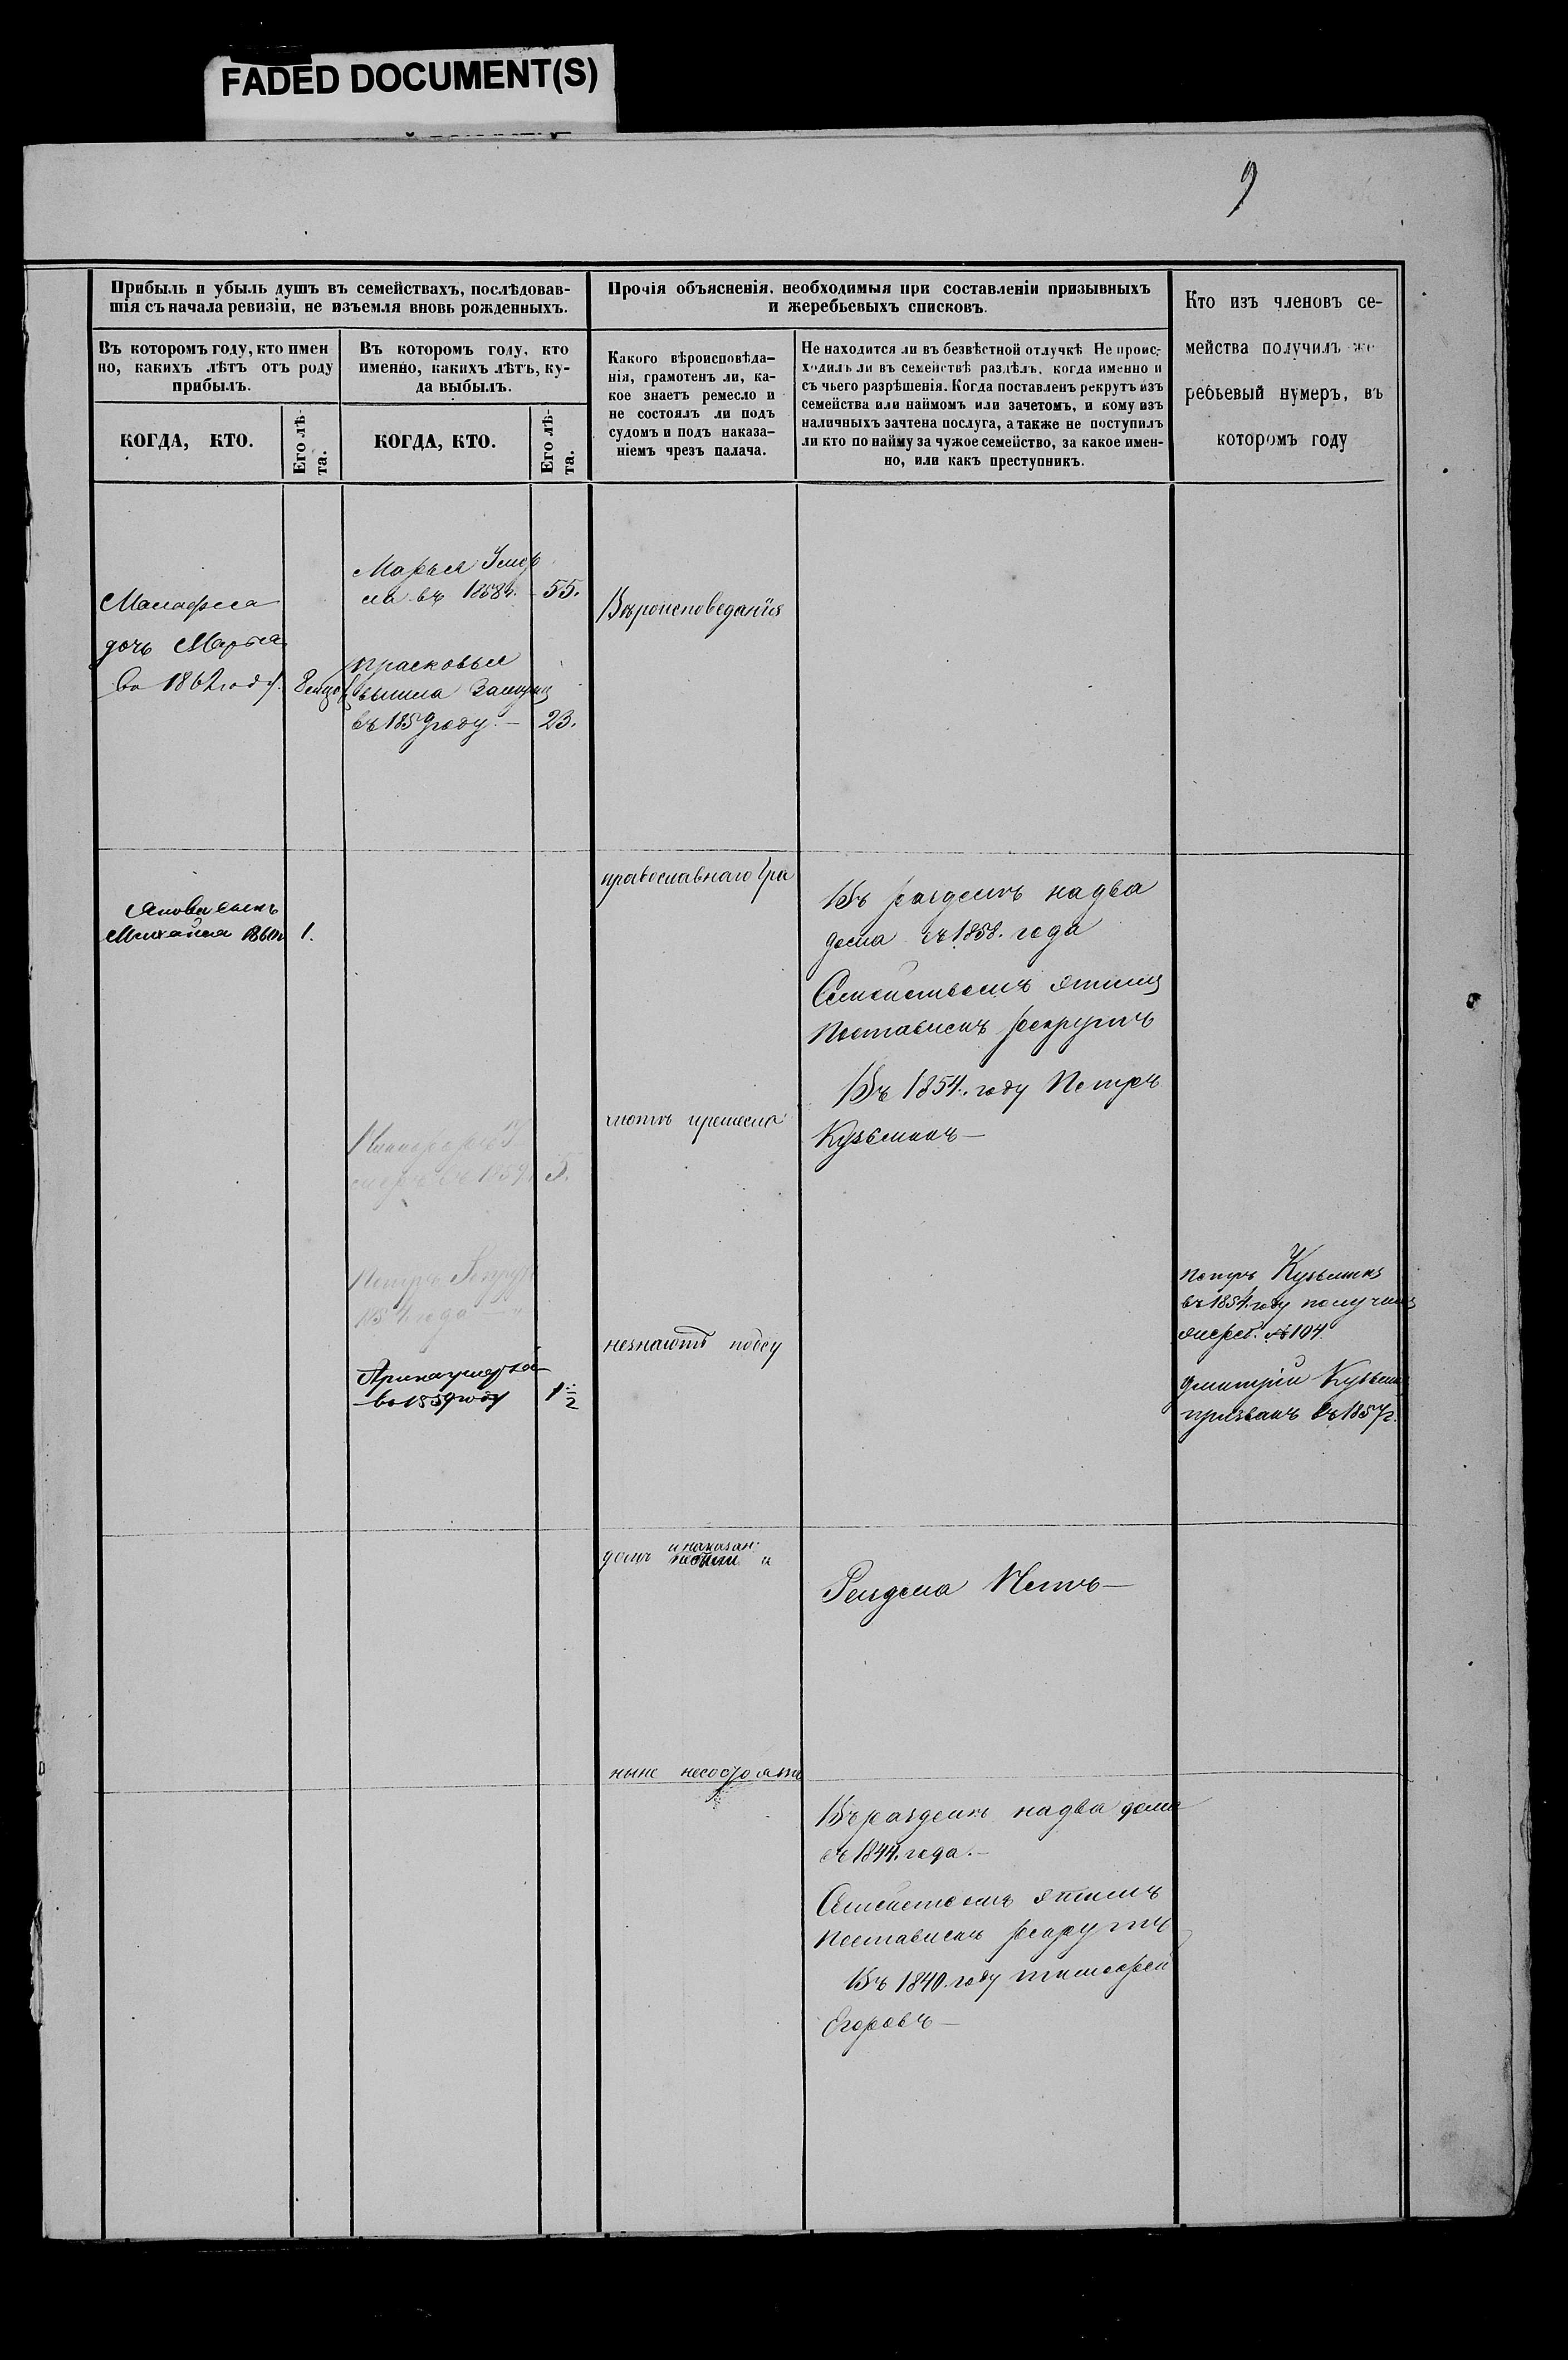 FADED DOCUMENT(S)
9
Прибыль и убыль душъ въ семействахъ, послѣдовав-
шія съ начала ревизіи, не изъемля вновь рожденныхъ.
Прочія объясненія, необходимыя при составленіи призывныхъ
и жеребьевыхъ списковъ.
Кто изъ членовъ се-
мейства получилъ же
ребьевый нумеръ, въ
которомъ году
Въ которомъ году, кто имен
но, какихъ лѣтъ отъ роду
прибылъ.
Въ которомъ году, кто
именно, какихъ лѣтъ, ку-
да выбылъ.
Какого вѣроисповѣда-
нія, грамотенъ ли, ка-
кое знаетъ ремесло и
не состоялъ ли подъ
судомъ и подъ наказа-
ніемъ чрезъ палача.
Не находится ли въ безвѣстной отлучкѣ Не проис-
ходилъ ли въ семействѣ раздѣлъ, когда именно и
съ чьего разрѣшенія. Когда поставленъ рекрутъ изъ
семейства или наймомъ или зачетомъ, и кому изъ
наличныхъ зачтена послуга, а также не поступилъ
ли кто по найму за чужое семейство, за какое имен-
но, или какъ преступникъ.
КОГДА, КТО.
Его лѣ-
та.
КОГДА, КТО.
Его лѣ-
та.
Марья Умер
ла въ 1858г. 55.
дочь Марья
во 1862 году.
Прасковья
вышла замужъ
въ 1859 году. — 23.
Вероисповеданія
православнаго Гра
Якова сынъ
Михайла 1860г 1.
Въ разделе на два
дома съ 1858. года
Семействомъ этимъ
Поставленъ рекрутъ
Въ 1854. году Петръ
Кузьминъ —
мотъ
Никифоръ У
меръ въ 1859. 5.
Петръ Рекрут
1854 года — "
Арина умерла
во 1859 году 1 1/2
незнаютъ подсу
Петръ Кузьминъ
въ 1854. году получилъ
жереб. № 104.
Дмитрій Кузьминъ
призванъ въ 1857г.
домъ и наказан:
Раздела Нетъ —
ныне несостояли
Въ разделе на два дома
съ 1844. года. —
Семействомъ этимъ
Поставленъ рекрутъ
Въ 1840. году тимофей
Егоровъ —